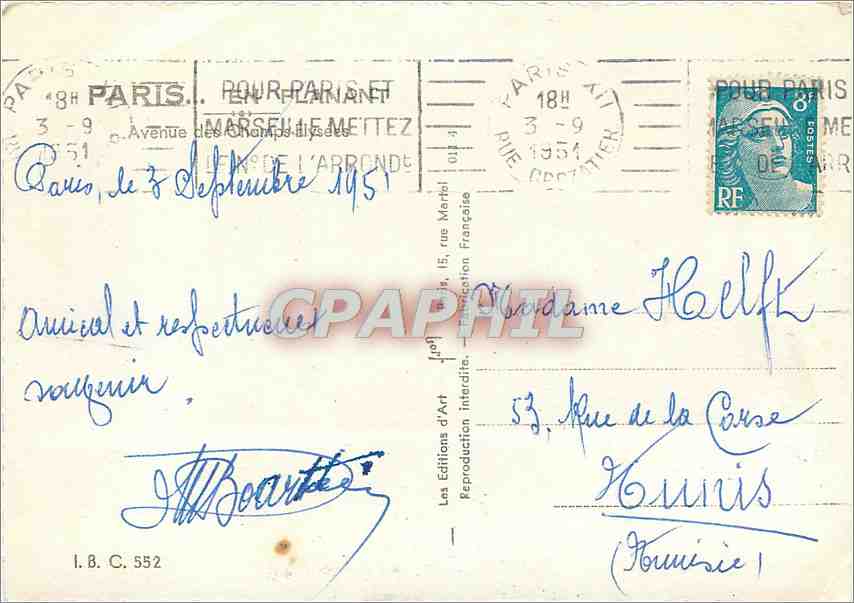 PARIS... EN FLANANT
Avenue des Champs-Elysées
POUR PARIS ET
MARSEILLE METTEZ
LE Nº DE L'ARRONDt
PARIS
18H
3 - 9
1951
PARIS XII
18H
3 - 9
1951
RUE CROZATIER
POUR PARIS
MARSEILLE ME
DE ARR
8F
POSTES
RF
Paris, le 3 Septembre 1951
Amical et respectueux
souvenir.
Madame Helft
53, Rue de la Corse
Tunis
(Tunisie)
CPAPHIL
Les Editions d'Art Paris, 15, rue Martel
Reproduction interdite. — Fabrication Française
I. B. C. 552